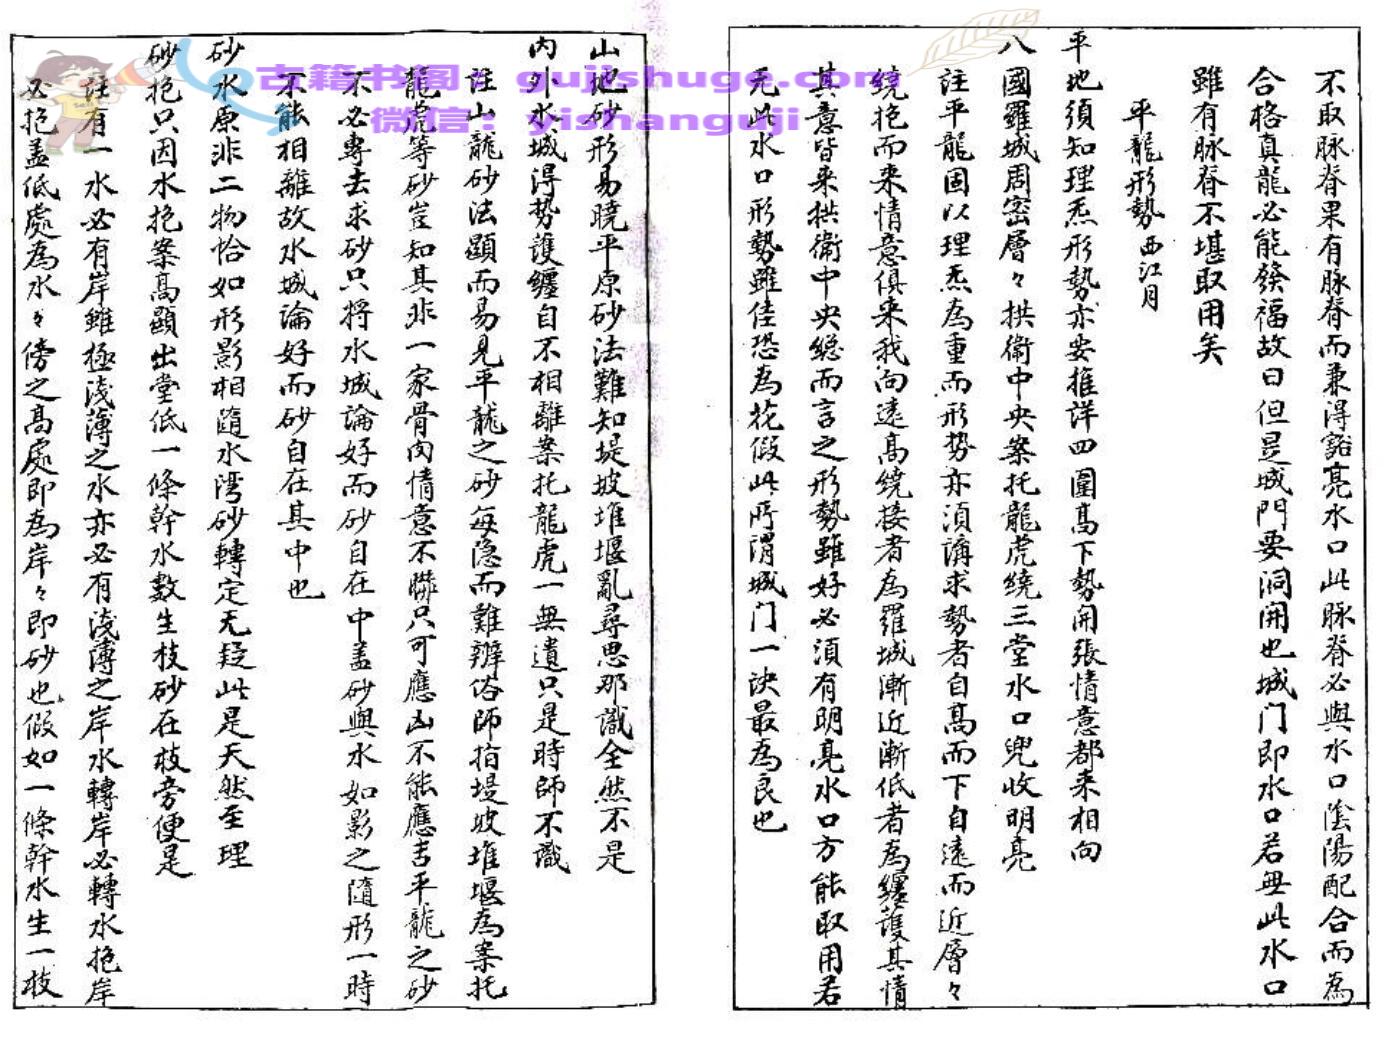 不取脉脊果有脉脊而兼得豁亮水口此脉脊必與水口陰陽配合而為
合格真龍必能發福故曰但是城門要洞開也城门即水口若毋此水口
雖有脉脊不堪取用矣
平龍形勢西江月
平地須知理炁形勢亦要推详四圍高下勢開張情意都来相向
八國羅城周密層々拱衛中央案托龍虎繞三堂水口兜收明亮
註平龍固以理炁為重而形势亦湏講求勢者自高而下自遠而近層々
繞抱而来情意俱来我向遠高繞接者為羅城漸近漸低者為纏護其情
其意皆来拱衛中央總而言之形勢雖好必湏有明亮水口方能取用若
无此水口形勢雖佳恐為花假此所謂城门一诀最為良也
山地砂形易曉平原砂法難知堤坡堆堰亂尋思那識全然不是
内外水城得势護纏自不相離案托龍虎一無遺只是時師不識
註山龍砂法顯而易見平龍之砂每隐而難辨俗師指堤坡堆堰為案托
龍虎等砂豈知其非一家骨肉情意不聯只可應凶不能應吉平龍之砂
不必專去求砂只将水城論好而砂自在中盖砂與水如影之隨形一時
不能相離故水城論好而砂自在其中也
砂水原非二物恰如形影相隨水湾砂轉定无疑此是天然至理
砂抱只因水抱案高顯出堂低一條幹水數生枝砂在枝旁便是
註有一水必有岸雖極浅薄之水亦必有浅薄之岸水轉岸必轉水抱岸
必抱盖低處為水々傍之高處即為岸々即砂也假如一條幹水生一枝
古籍书阁：gujishuge.com
微信：yishanguji